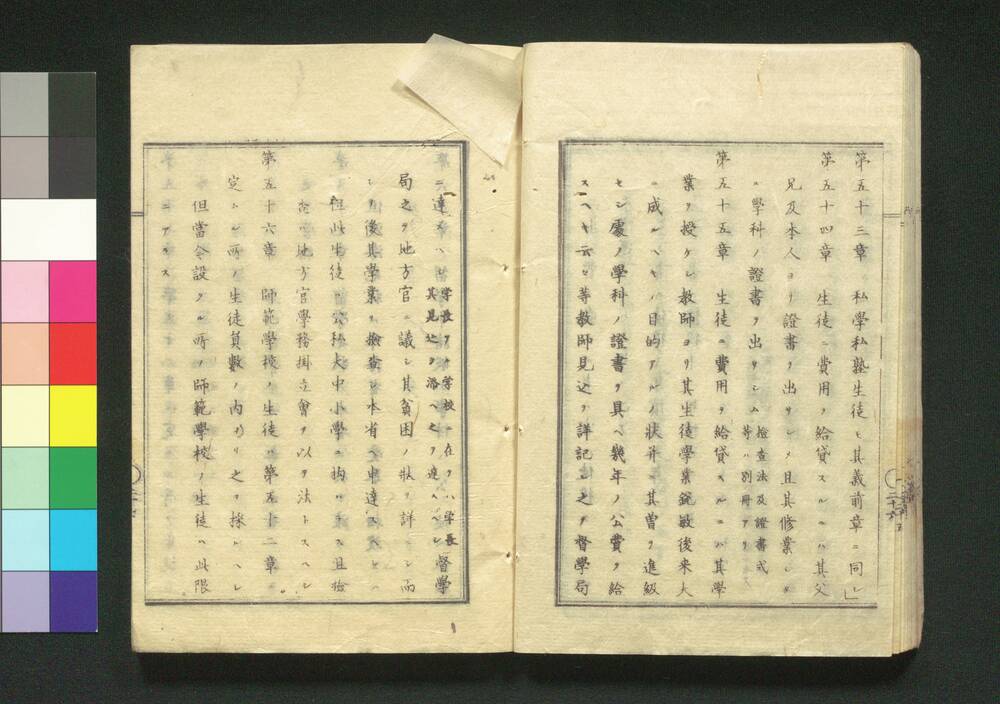 第五十三章 私學私塾生徒モ其義前章ニ同シ」
第五十四章 生徒ニ費用ヲ給貸スルニハ其父
兄及本人ヨリ證書ヲ出サシメ且其修業シタ
ル學科ノ證書ヲ出サシム
檢查法及證書式
等ハ別冊アリ
第五十五章 生徒ニ費用ヲ給貸スルニハ其學
業ヲ授ケシ教師ヨリ其生徒學業銳敏後来大
ニ成ルヘキノ目的アルノ狀并ニ其曽テ進級
セシ處ノ學科ノ證書ヲ具ヘ幾年ノ公費ヲ給
スヘキ云々等教師見込ヲ詳記シ之ヲ督學局
二十六
ニ達スヘシ
學校アリ学校ニ在テハ学長
其見込ヲ添ヘ之ヲ進ムヘシ
督學
局之ヲ地方官ニ議シ其貧困ノ狀ヲ詳ニシ而
シテ後其學業ヲ檢查シ本省ヘ申達スヘシ
但此生徒ハ公私大中小學ニ拘ハラス且檢
查ハ地方官學務掛立會ヲ以テ法トスヘシ
第五十六章 師範學校ノ生徒ハ第五十二章ニ
定ムル所ノ生徒員數ノ内ヨリ之ヲ採ルヘシ
但當今設クル所ノ師範學校ノ生徒ハ此限